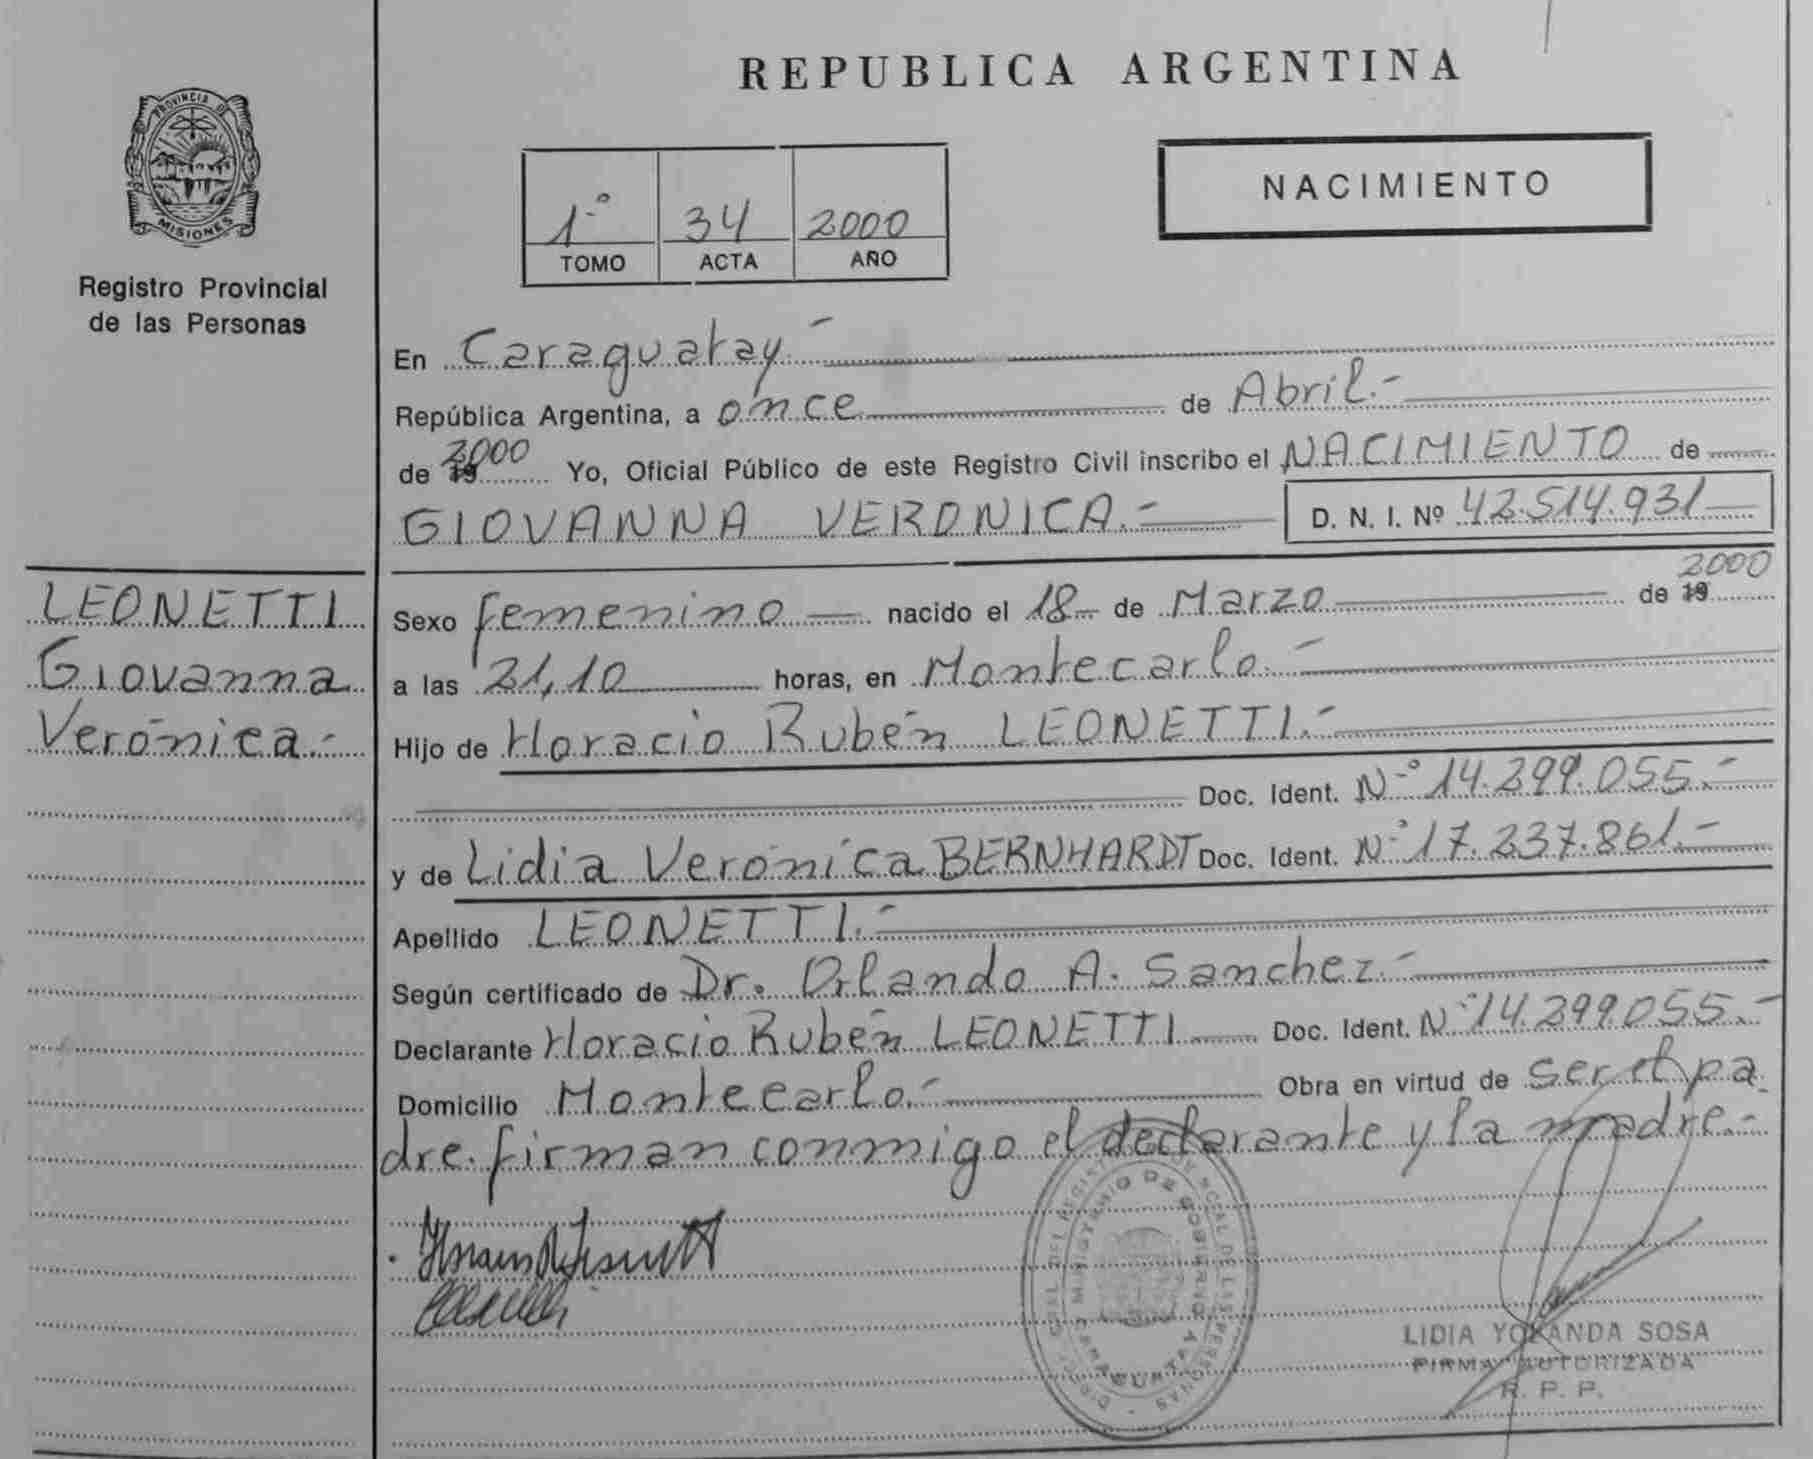 REPUBLICA ARGENTINA
PROVINCIA DE
MISIONES
Registro Provincial
de las Personas
NACIMIENTO
1º 34 2000
TOMO ACTA AÑO
En Caraguatay.-
República Argentina, a once de Abril.-
de 19 2000 Yo, Oficial Público de este Registro Civil inscribo el NACIMIENTO de
GIOVANNA VERONICA.- D. N. I. Nº 42.514.931
LEONETTI
Giovanna
Verónica.-
Sexo femenino nacido el 18 de Marzo de 19 2000
a las 21,10 horas, en Montecarlo.-
Hijo de Horacio Rubén LEONETTI.-
Doc. Ident. Nº 14.299.055.-
y de Lidia Verónica BERNHARDT Doc. Ident. Nº 17.237.861.-
Apellido LEONETTI.-
Según certificado de Dr. Orlando A. Sanchez.-
Declarante Horacio Rubén LEONETTI Doc. Ident. Nº 14.299.055.-
Domicilio Montecarlo.- Obra en virtud de ser el pa
dre. firman conmigo el declarante y la madre.-
MINISTERIO DE GOBIERNO
LIDIA YOLANDA SOSA
FIRMA AUTORIZADA
R. P. P.